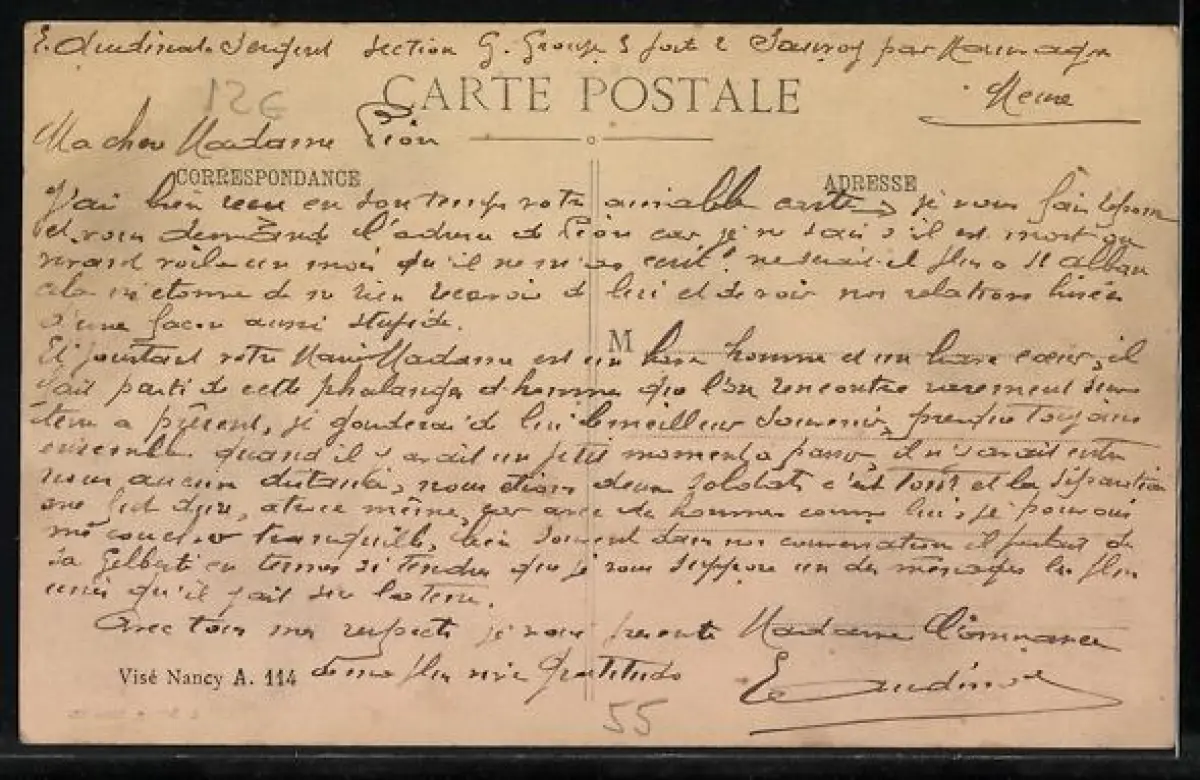 E. Audinot Sergent Section G. Groupe 3 fort 2 par
Meuse
12€
CARTE POSTALE
Ma chere Madame Pión
CORRESPONDANCE
ADRESSE
J'ai bien recu en son temps votre aimable carte, je vous fais réponse
et vous demande l'adresse de Pión car je ne sais s'il est mort ou
vivant voila un mois qu'il ne m'as ecrit. ne serait il plus a St alban
cela m'etonne de ne rien recevoir de lui et de voir nos relations brisées
d'une façon aussi stupide.
Et pourtant votre Mari Madame est un brave homme et un brave cœur, il
fait parti de cette phalange d'homme que l'on rencontre rarement sur
terre a présent, je garderai de lui le meilleur souvenir, presque toujours
ensemble quand il y avait un petit moment a passer, il n'y avait entre
nous aucune distance, nous etions deux soldats c'est tout et la séparation
me fut dure, atroce même, car avec des hommes comme lui, je pouvais
me coucher tranquille, bien souvent dans nos conversation il parlait de
sa Gilberte en termes si tendres que je vous suppose un des ménages les plus
unis qu'il soit sur la terre.
M
Avec tous mes respects je vous presente Madame l'assurance
de ma plus vive gratitude
E Audinot
Visé Nancy A. 114
55